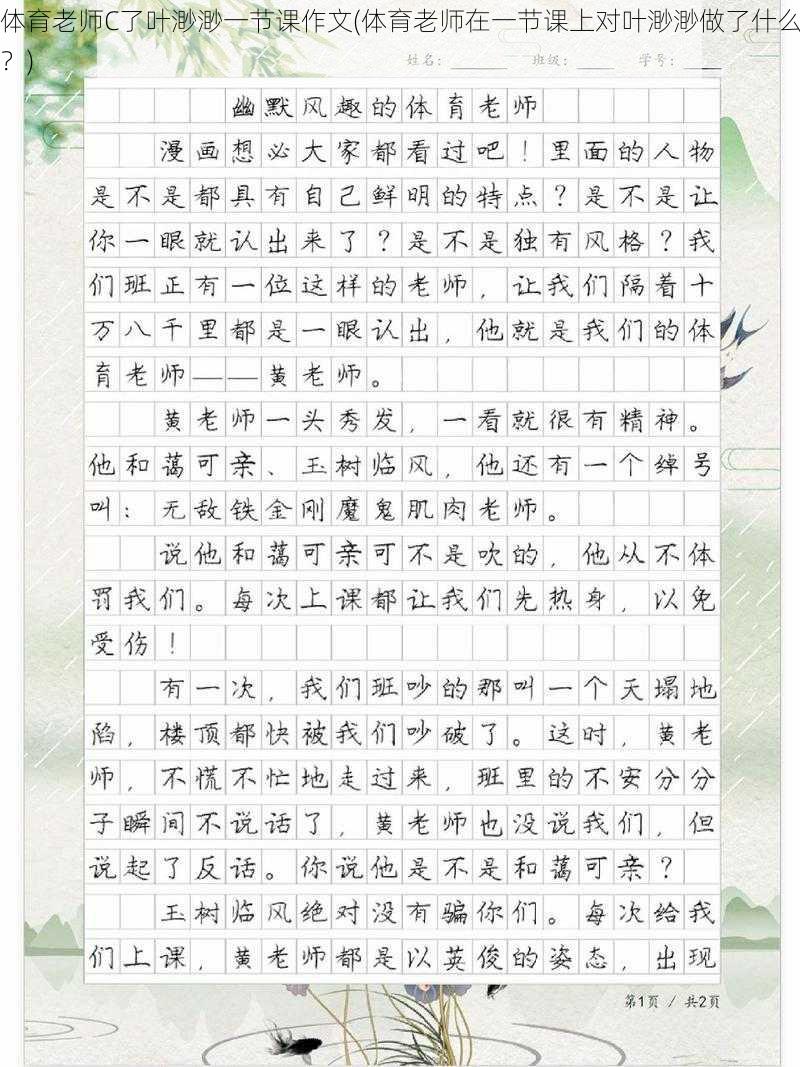 体育老师C了叶渺渺一节课作文(体育老师在一节课上对叶渺渺做了什么
？)
姓名： 班级： 学号：
幽默风趣的体育老师
漫画想必大家都看过吧！里面的人物
是不是都具有自己鲜明的特点？是不是让
你一眼就认出来了？是不是独有风格？我
们班正有一位这样的老师，让我们隔着十
万八千里都是一眼认出，他就是我们的体
育老师——黄老师。
黄老师一头秀发，一看就很有精神。
他和蔼可亲、玉树临风，他还有一个绰号
叫：无敌铁金刚魔鬼肌肉老师。
说他和蔼可亲可不是吹的，他从不体
罚我们。每次上课都让我们先热身，以免
受伤！
有一次，我们班吵的那叫一个天塌地
陷，楼顶都快被我们吵破了。这时，黄老
师，不慌不忙地走过来，班里的不安分分
子瞬间不说话了，黄老师也没说我们，但
说起了反话。你说他是不是和蔼可亲？
玉树临风绝对没有骗你们。每次给我
们上课，黄老师都是以英俊的姿态，出现
第1页 / 共2页